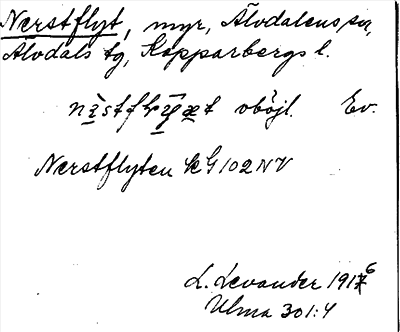 Nerstflyt, myr, Älvdalens sn,
Älvdals tg, Kopparbergs l.
obøjl. Ev.
Nerstflyten kG 102 NV
L. Levander 1916
Ulma 301:4